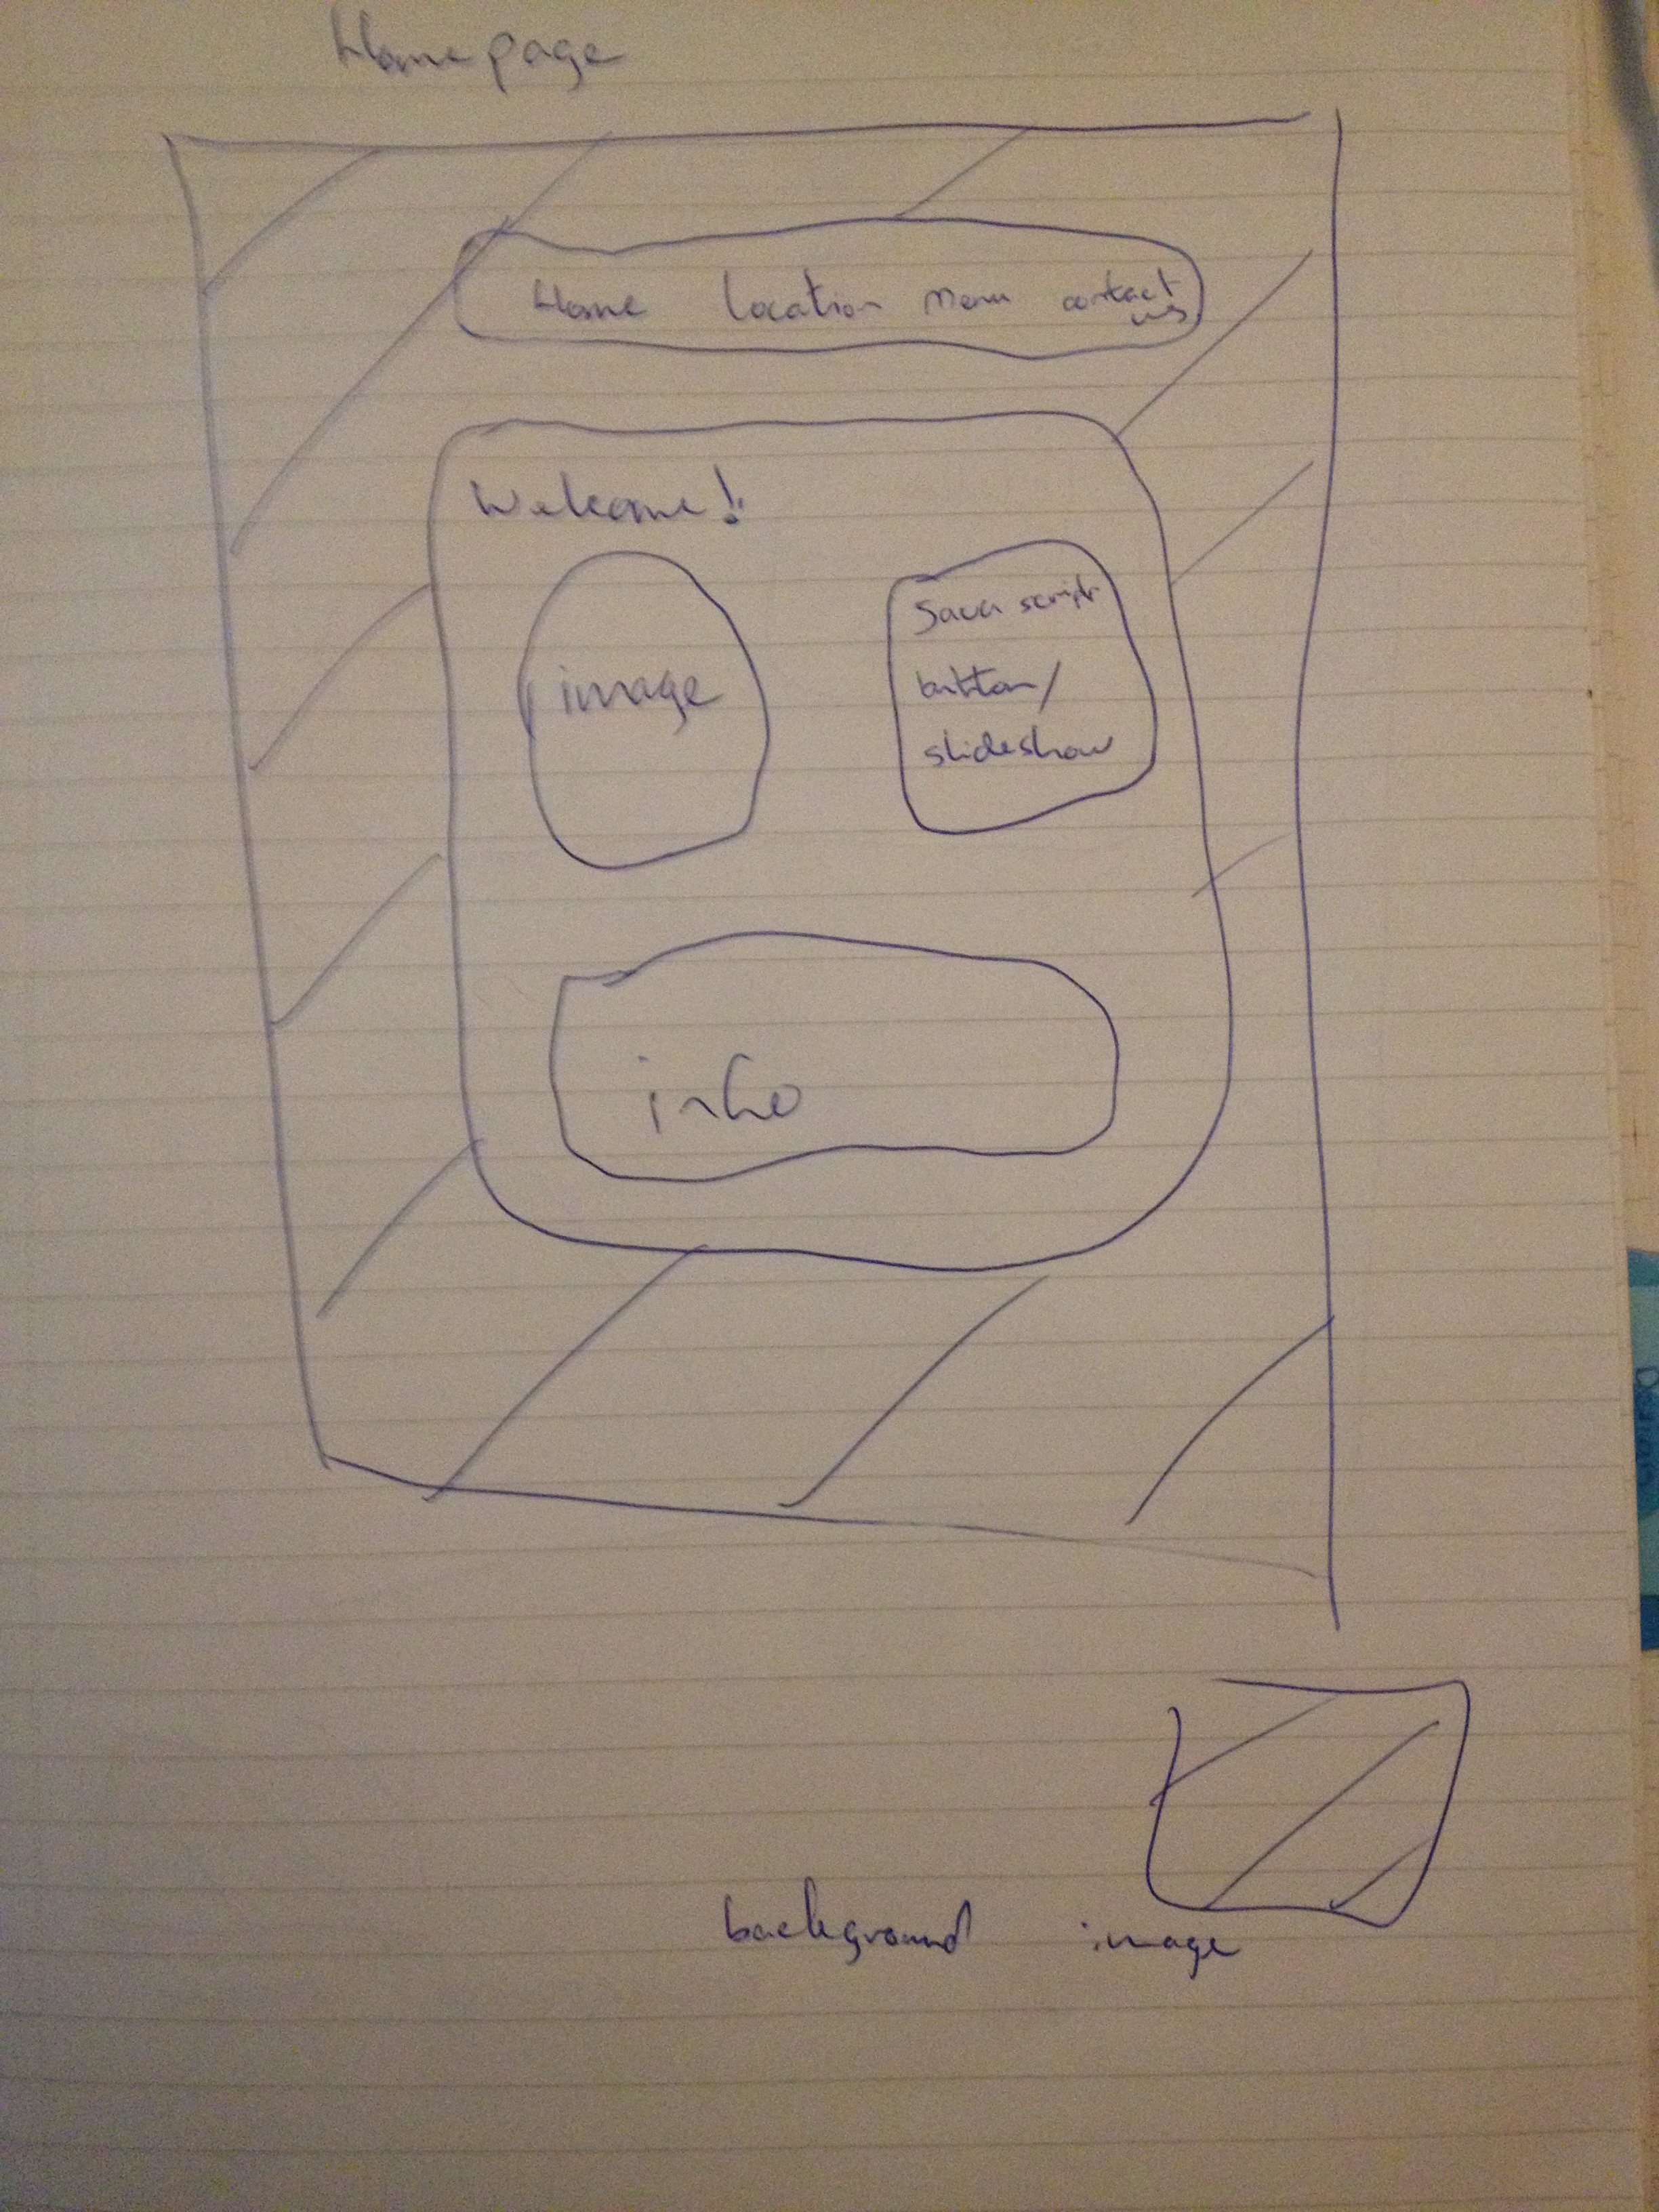 Home page
Home location Menu contact us
Welcome!
image
Java script
button/
slideshow
info
background image